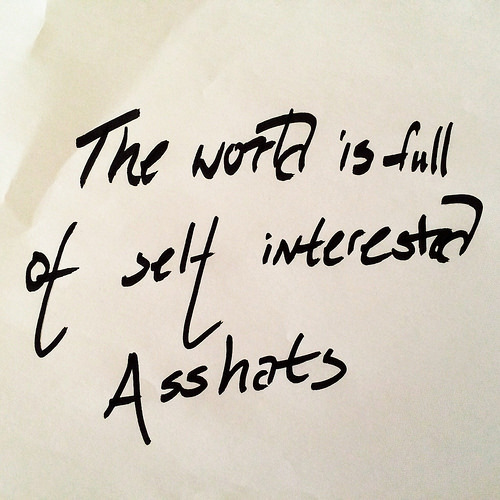 The world is full
of self interested
Asshats